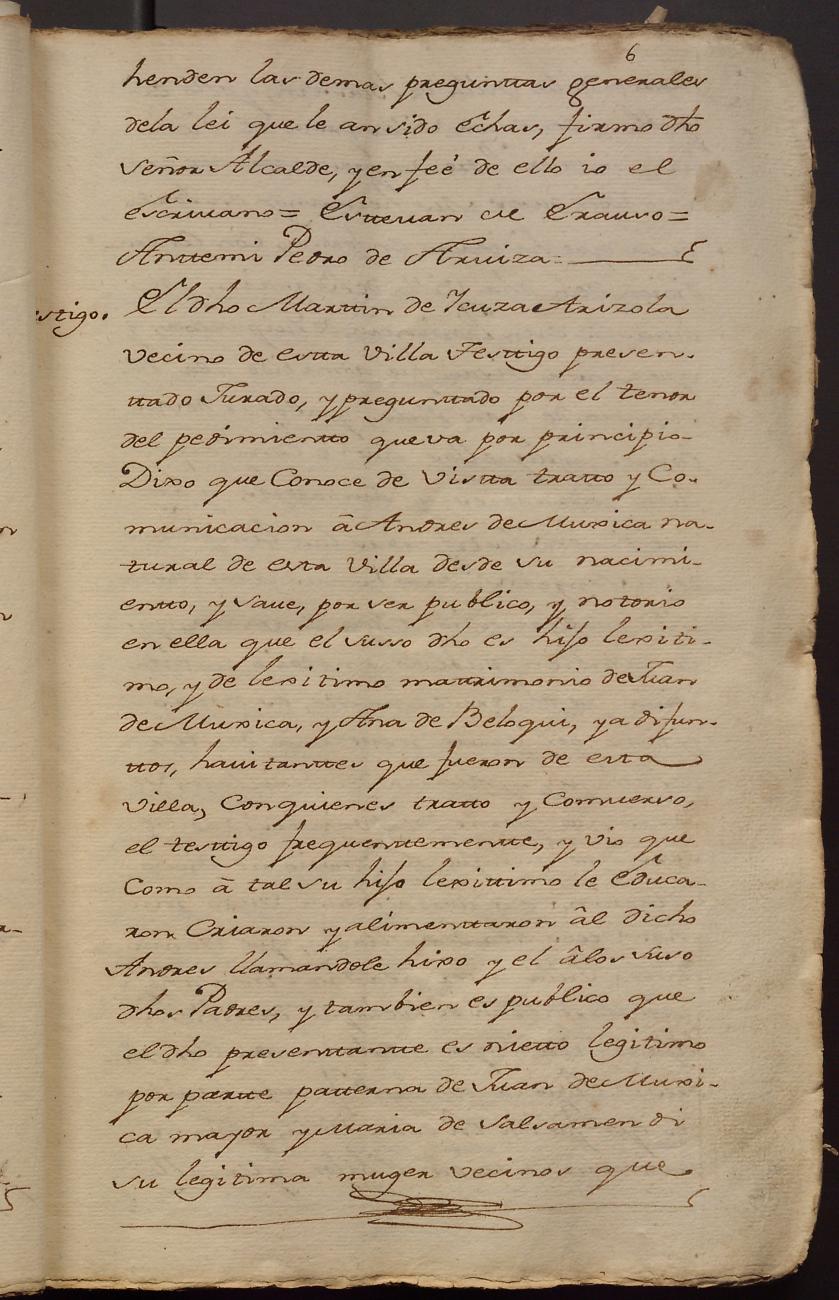 6
henden las demas pregunttas generales
dela lei que le an sido echas, firmo dho
señor Alcalde, y en feé de ello io el
escriuano = Esttevan de Erauso =
Anttemi Pedro de Aruiza =
stigo. El dho Marttin de Ycuza Arizola
vecino de estta Villa Testtigo presen-
ttado Jurado, y pregunttado por el tenor
del pedimientto que va por principio
Dixo que Conoce de Vistta tratto y Co-
municacion â Andres de Muxica na-
tural de esta Villa desde su nacimi-
entto, y saue, por ser publico, y notorio
en ella que el susso dho es hijo lexiti-
mo, y de lexitimo mattrimonio de Juan
de Muxica, y Ana de Beloqui, ya difun-
ttos, hauitanttes que fueron de esta
Villa, Con quienes tratto y Conuerso,
el testtigo frequenttementte, y vio que
Como â tal su hijo lexittimo le educa-
ron Criaron y alimenttaron âl dicho
Andres llamandole hixo y el âlos suso
dhos Padres, y tambien es publico que
el dho presenttantte es nietto legitimo
por partte patterna de Juan de Muxi-
ca mayor y Maria de Salsamendi
su legitima muger vecinos que